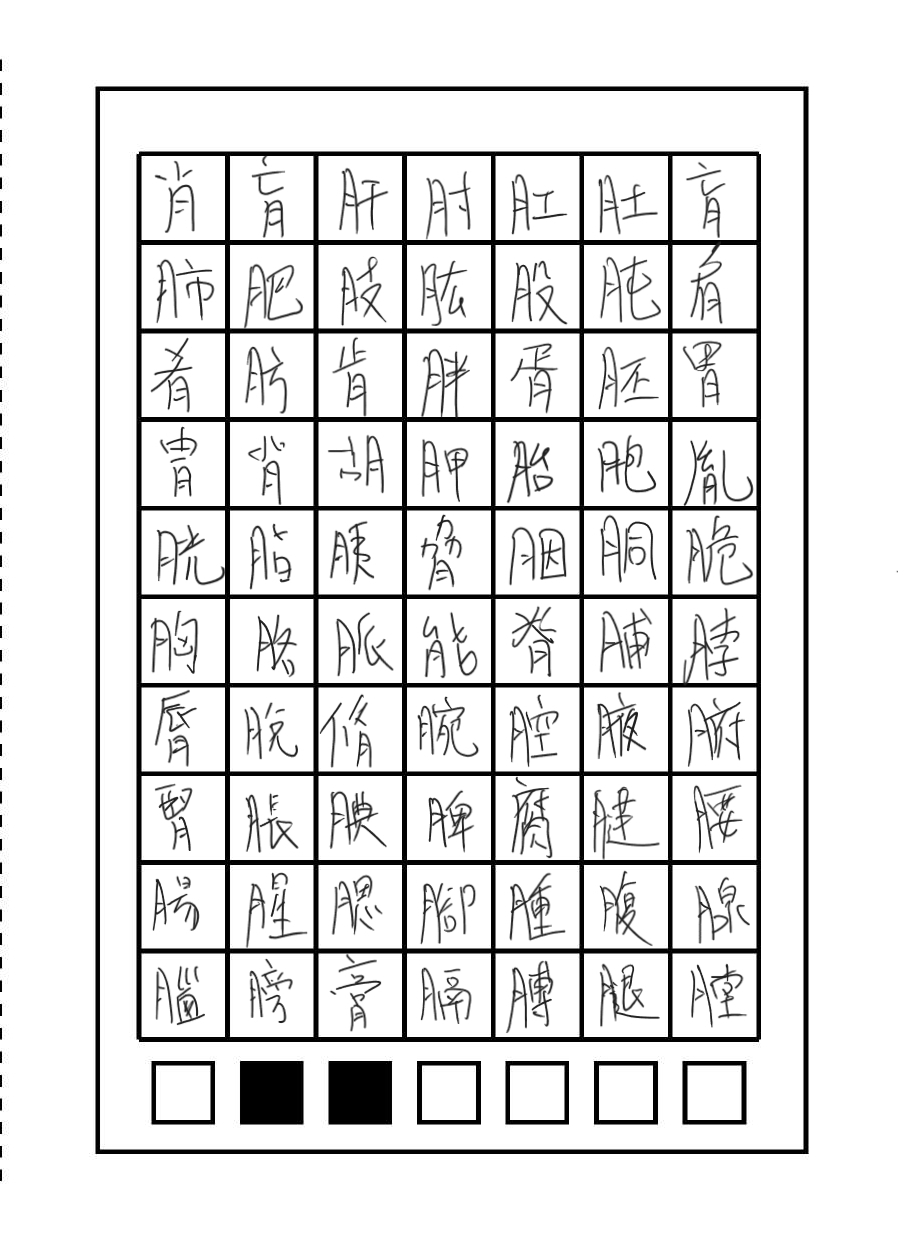 肖肓肝肘肛肚肓
肺肥肢肱股肫肩
肴肪肯胖胥胚胃
胄背胡胛胎胞胤
胱脂胰脅胭胴脆
胸胳脈能脊脯脖
脣脫脩腕腔腋腑
腎脹腆脾腐腱腰
腸腥腮腳腫腹腺
腦膀膏膈膊腿膣